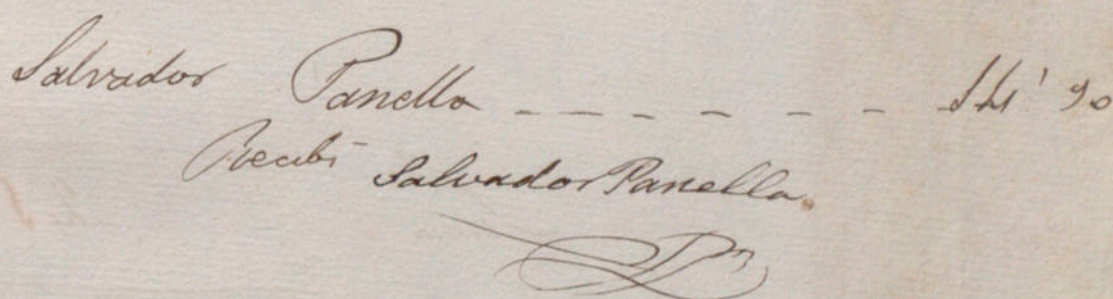 Salvador Panella - - - - - - - 90
Recibí Salvador Panella